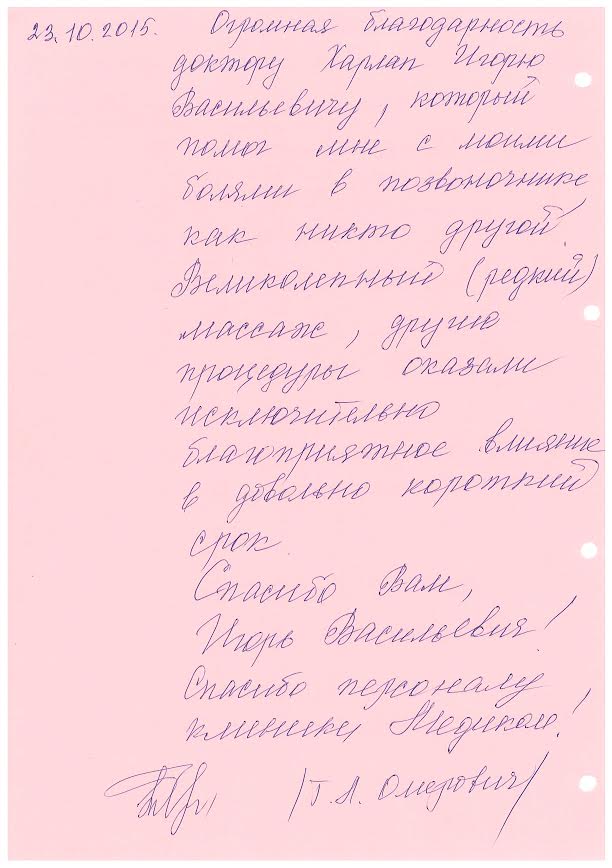 23.10.2015. Огромная благодарность
доктору Харлап Игорю
Васильевичу, который
помог мне с моими
болями в позвоночнике,
как никто другой.
Великолепный (редкий)
массаж, другие
процедуры оказали
исключительно
благоприятное влияние
в довольно короткий
срок.
Спасибо Вам,
Игорь Васильевич!
Спасибо персоналу
клиники !
/Т. А. Омерович/